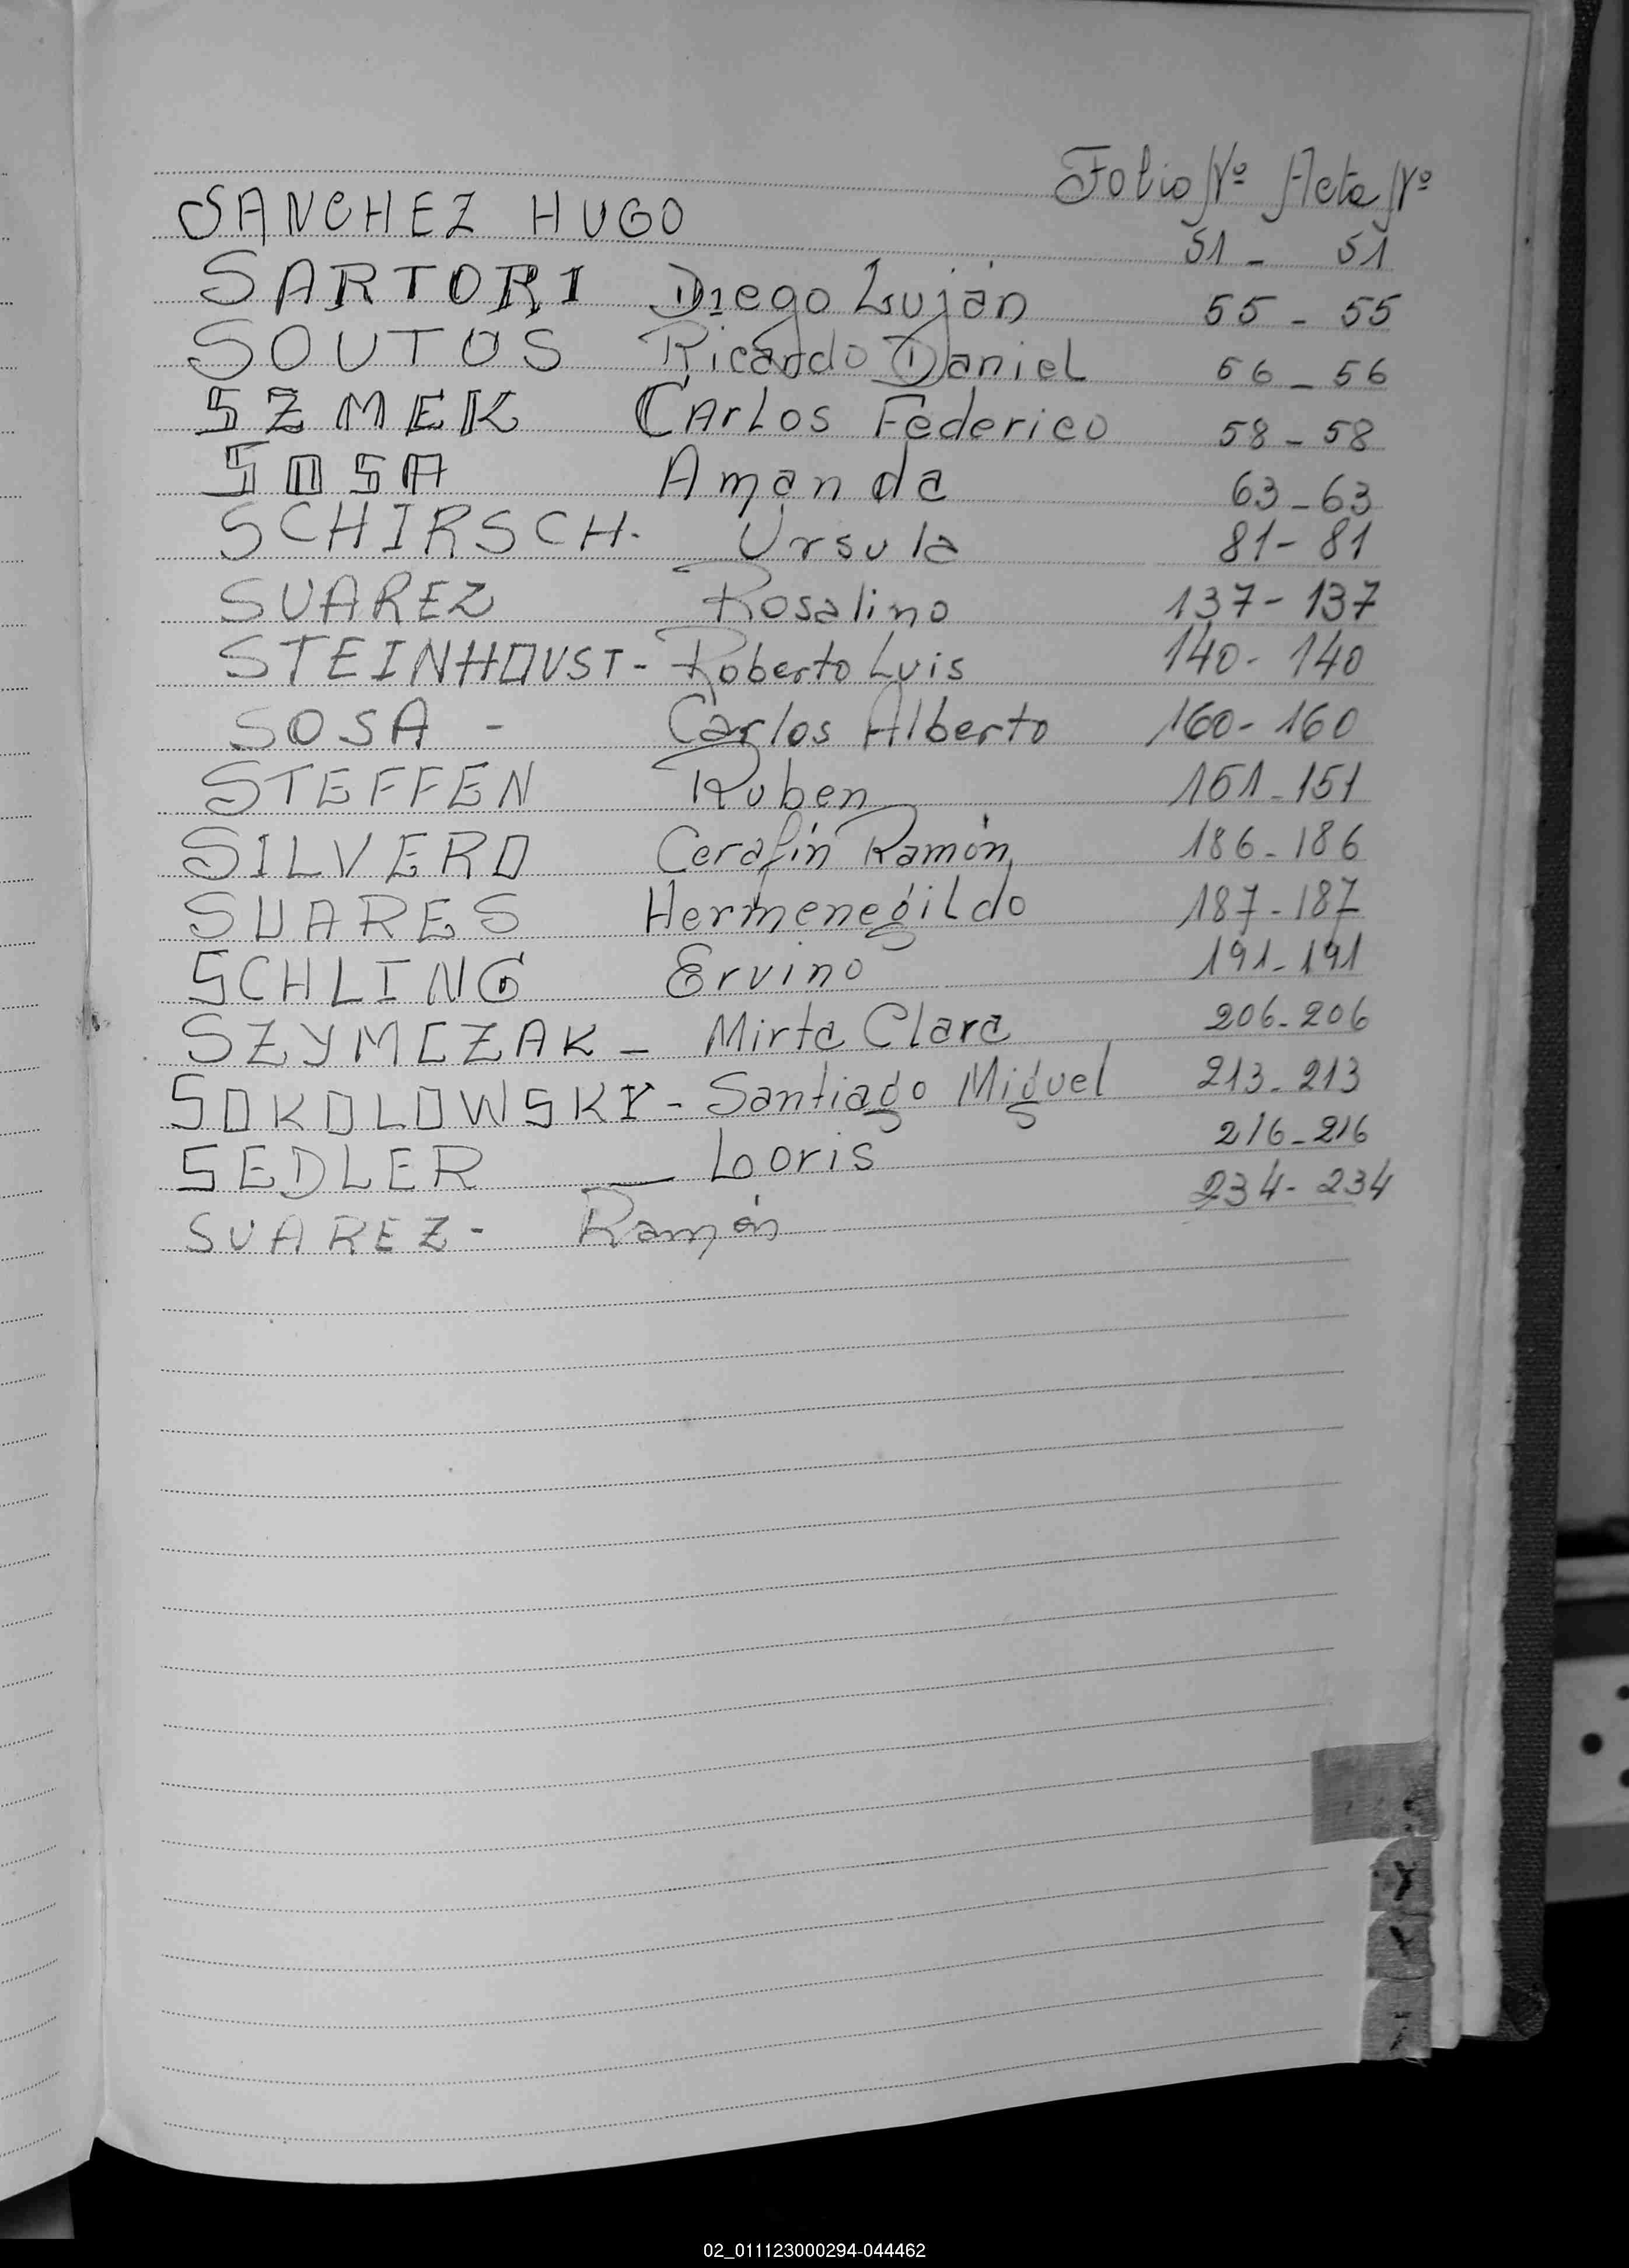 Folio Nº Acta Nº
SANCHEZ HUGO 51 - 51
SARTORI Diego Luján 55 - 55
SOUTOS Ricardo Daniel 56 - 56
SZMEK CArLos Federico 58 - 58
SOSA Amanda 63 - 63
SCHIRSCH. Ursula 81 - 81
SUAREZ Rosalino 137 - 137
STEINHOUST - Roberto Luis 140 - 140
SOSA - Carlos Alberto 160 - 160
STEFFEN Ruben 151 - 151
SILVERO Cerafín Ramón 186 - 186
SUARES Hermenegildo 187 - 187
SCHLING Ervino 191 - 191
SZYMCZAK - Mirta Clara 206 - 206
SOKOLOWSKY - Santiago Miguel 213 - 213
SEDLER - Loris 216 - 216
SUAREZ - Ramón 234 - 234
02_011123000294-044462